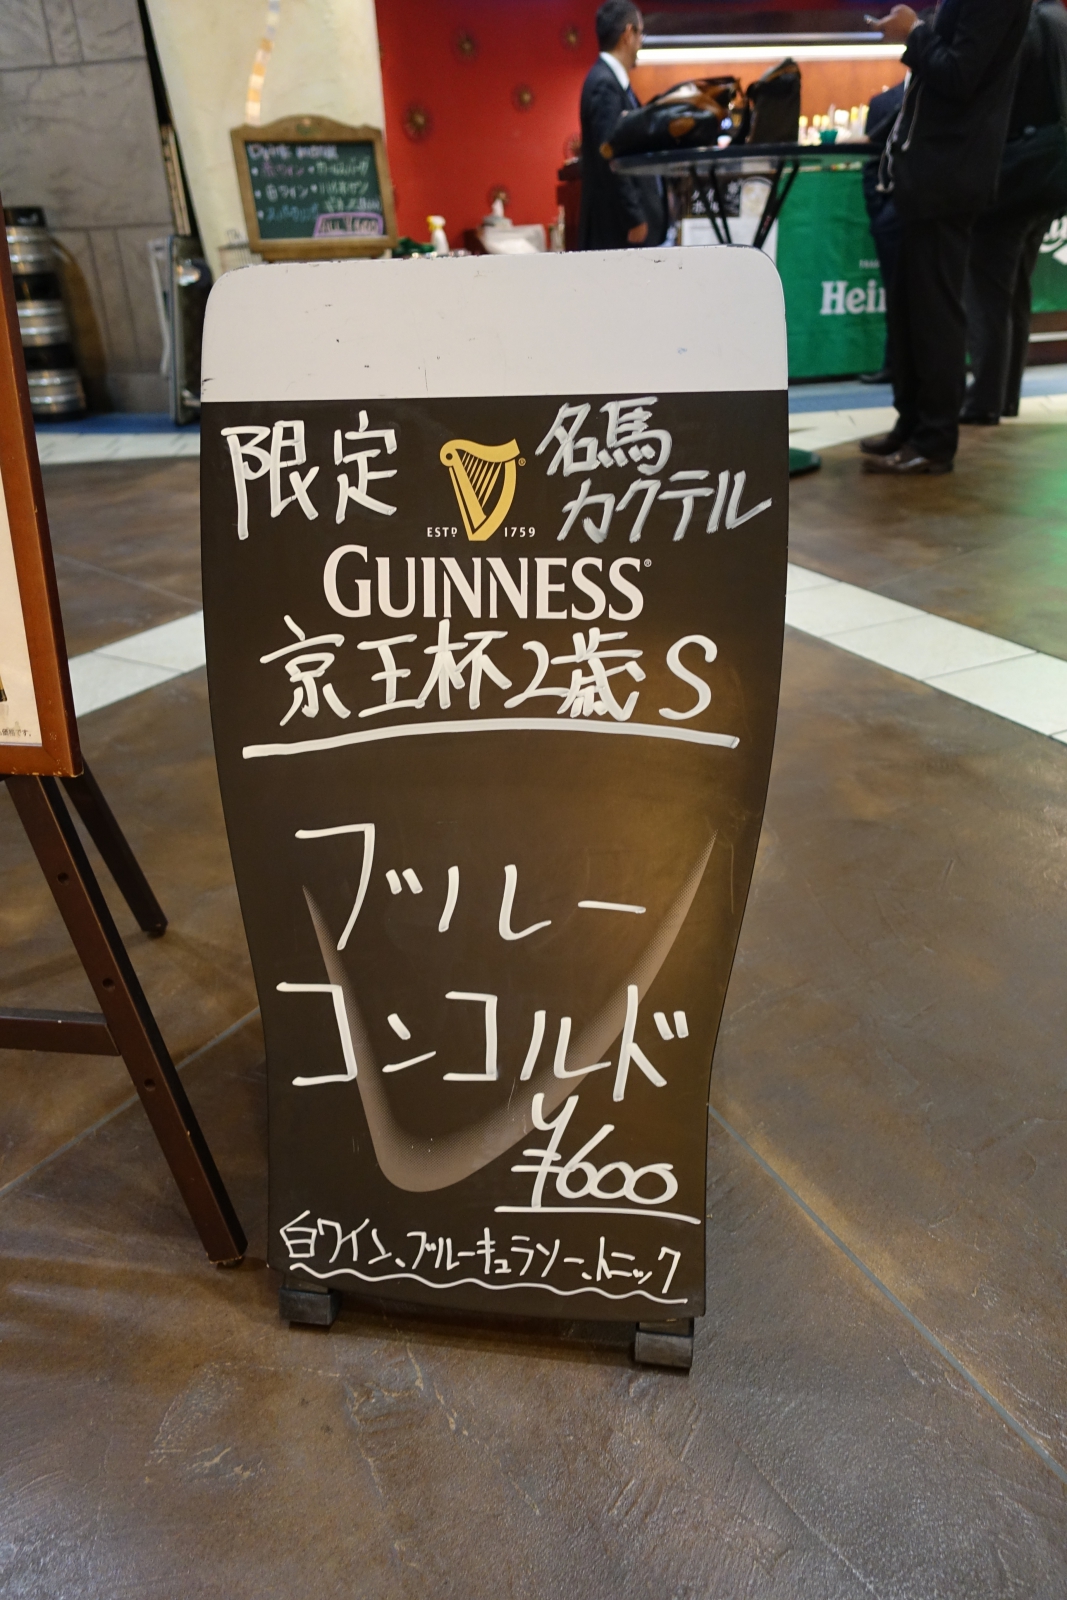 限定
名馬
カクテル
ESTD 1759
GUINNESS®
京王杯2歳S
ブルー
コンコルド
¥600
白ワイン、ブルーキュラソー、トニック
Hei